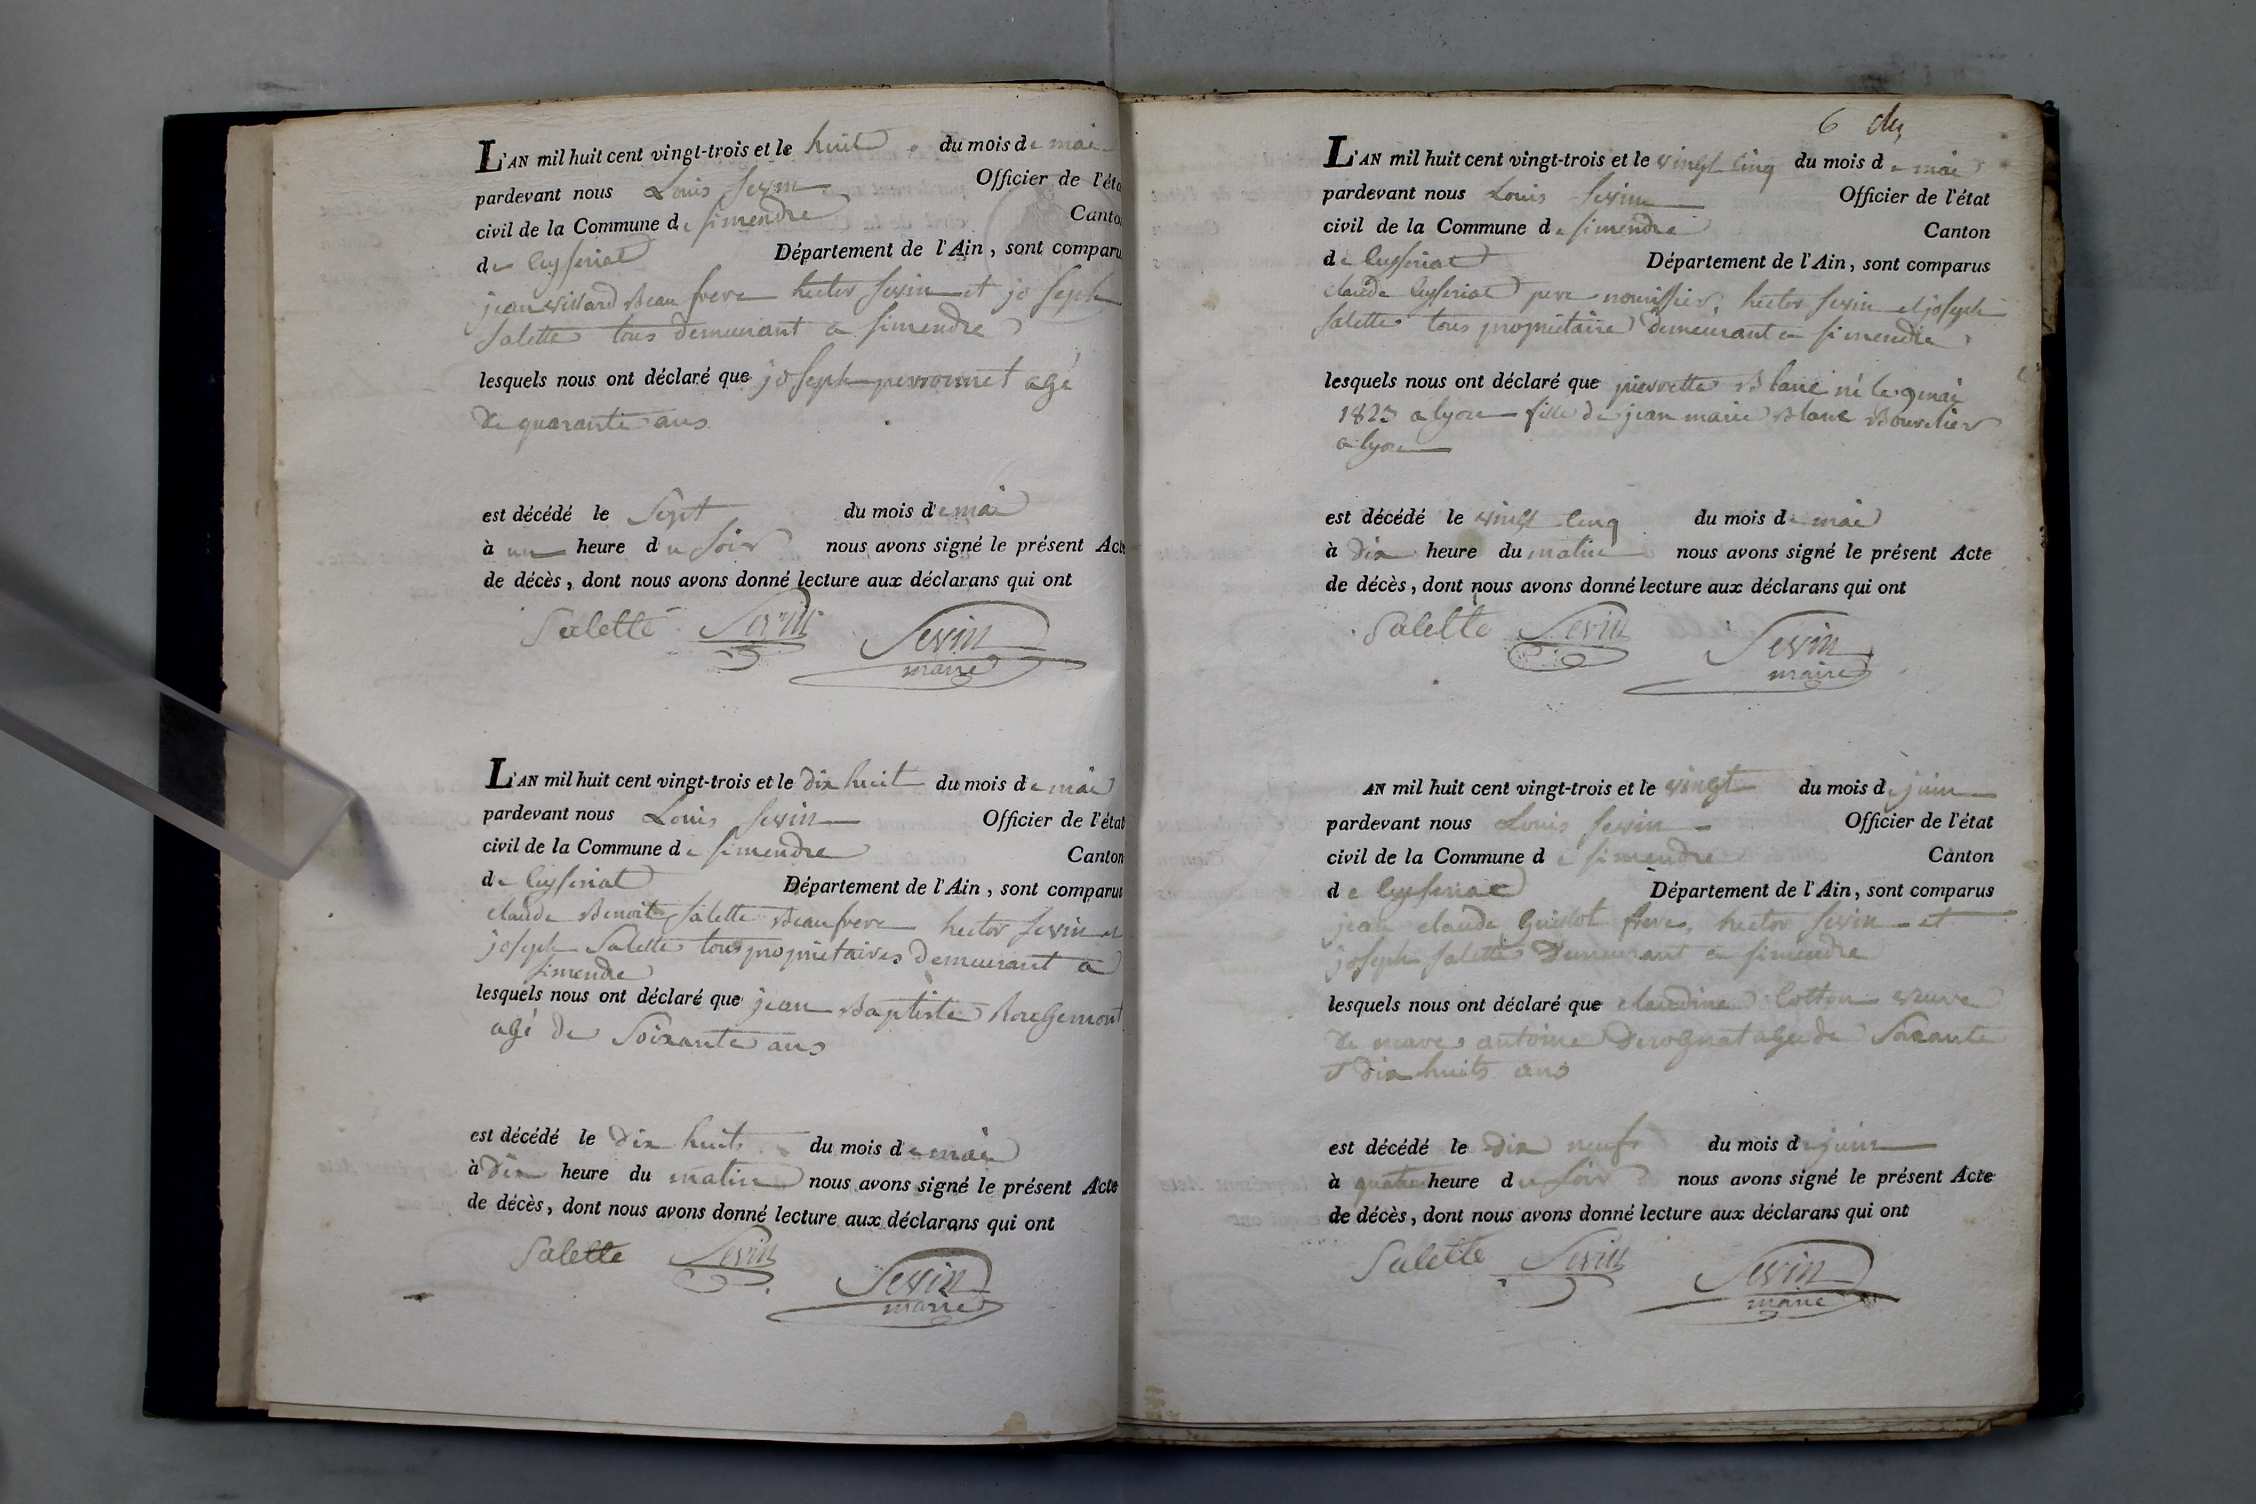 L'AN mil huit cent vingt-trois et le huit du mois de mai
pardevant nous Louis Sevin Officier de l'éta
civil de la Commune de Simendre Canto
de Ceyseriat Département de l'Ain, sont comparu
jean villard Beau frere hector Sevin et joseph
Salette tous demeurant a Simendre
lesquels nous ont déclaré que joseph perronnet agé
de quarante ans
est décédé le Sept du mois de mai
à un heure du Soir nous avons signé le présent Acte
de décès, dont nous avons donné lecture aux déclarans qui ont
Salette Sevin Sevin
maire
L'AN mil huit cent vingt-trois et le dix huit du mois de mai
pardevant nous Louis Sevin Officier de l'état
civil de la Commune de Simendre Canton
de Ceyseriat Département de l'Ain, sont comparus
claude Benoit Salette Beaufrere hector Sevin et
joseph Salette tous proprietaires demeurant a
Simendre
lesquels nous ont déclaré que jean Baptiste Rougemont
agé de Soixante ans
est décédé le dix huit du mois de mai
à dix heure du matin nous avons signé le présent Acte
de décès, dont nous avons donné lecture aux déclarans qui ont
Salette Sevin Sevin
maire
6
L'AN mil huit cent vingt-trois et le vingt cinq du mois de mai
pardevant nous Louis Sevin Officier de l'état
civil de la Commune de Simendre Canton
de Ceyseriat Département de l'Ain, sont comparus
claude Ceyseriat pere nourissier, hector Sevin et joseph
Salette tous proprietaire demeurant a Simendre
lesquels nous ont déclaré que pierrette Blanc né le 9 mai
1823 a lyon fille de jean marie Blanc Bourelier
a lyon
est décédé le vingt cinq du mois de mai
à dix heure du matin nous avons signé le présent Acte
de décès, dont nous avons donné lecture aux déclarans qui ont
Salette Sevin Sevin
maire
AN mil huit cent vingt-trois et le vingt du mois de juin
pardevant nous Louis Sevin Officier de l'état
civil de la Commune de Simendre Canton
de Ceyseriat Département de l'Ain, sont comparus
jean claude frere, hector Sevin et
joseph Salette Demeurant a Simendre
lesquels nous ont déclaré que claudine Cotton veuve
de antoine Derognat agée de Soixante
et dix huits ans
est décédé le dix neuf du mois de juin
à quatre heure du Soir nous avons signé le présent Acte
de décès, dont nous avons donné lecture aux déclarans qui ont
Salette Sevin Sevin
maire